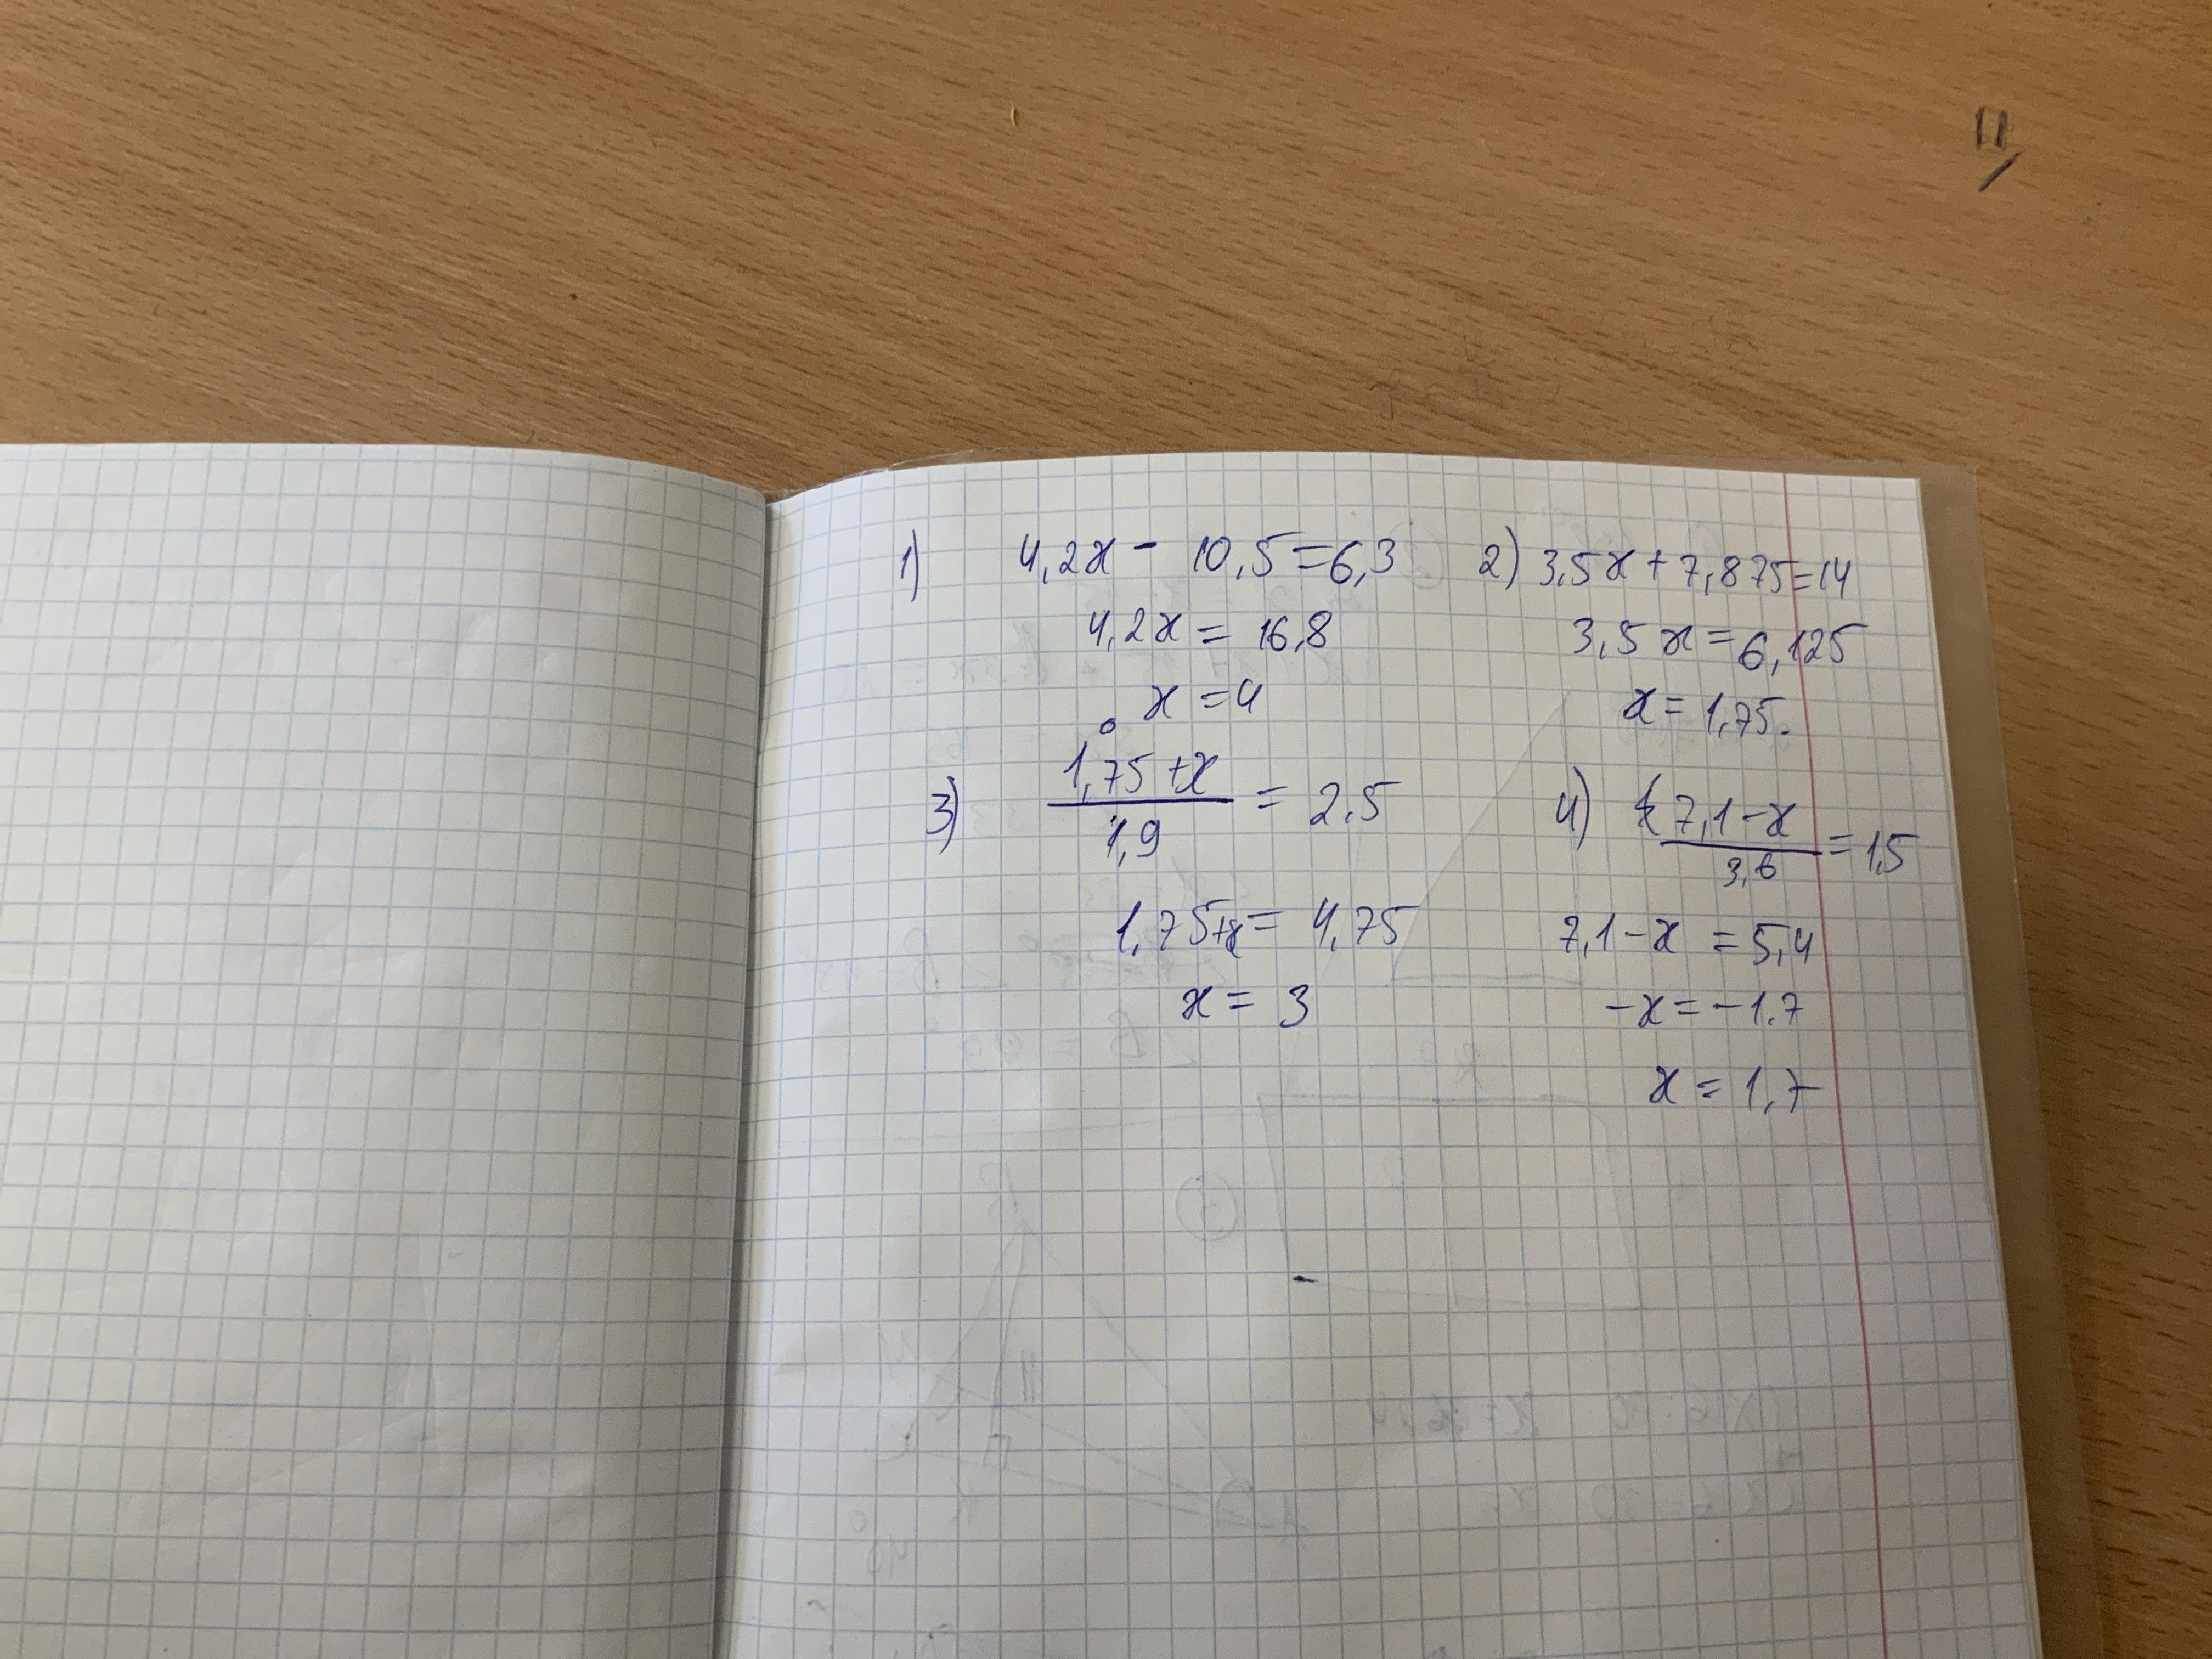 1) 4,2x - 10,5=6,3
4,2x = 16,8
x = 4
2) 3,5x + 7,875=14
3,5x = 6,125
x = 1,75.
3) 1,75 + x
1,9
= 2,5
1,75+x = 4,75
x = 3
4) 7,1 - x
3,6
= 1,5
7,1 - x = 5,4
-x = -1.7
x = 1,7
11,